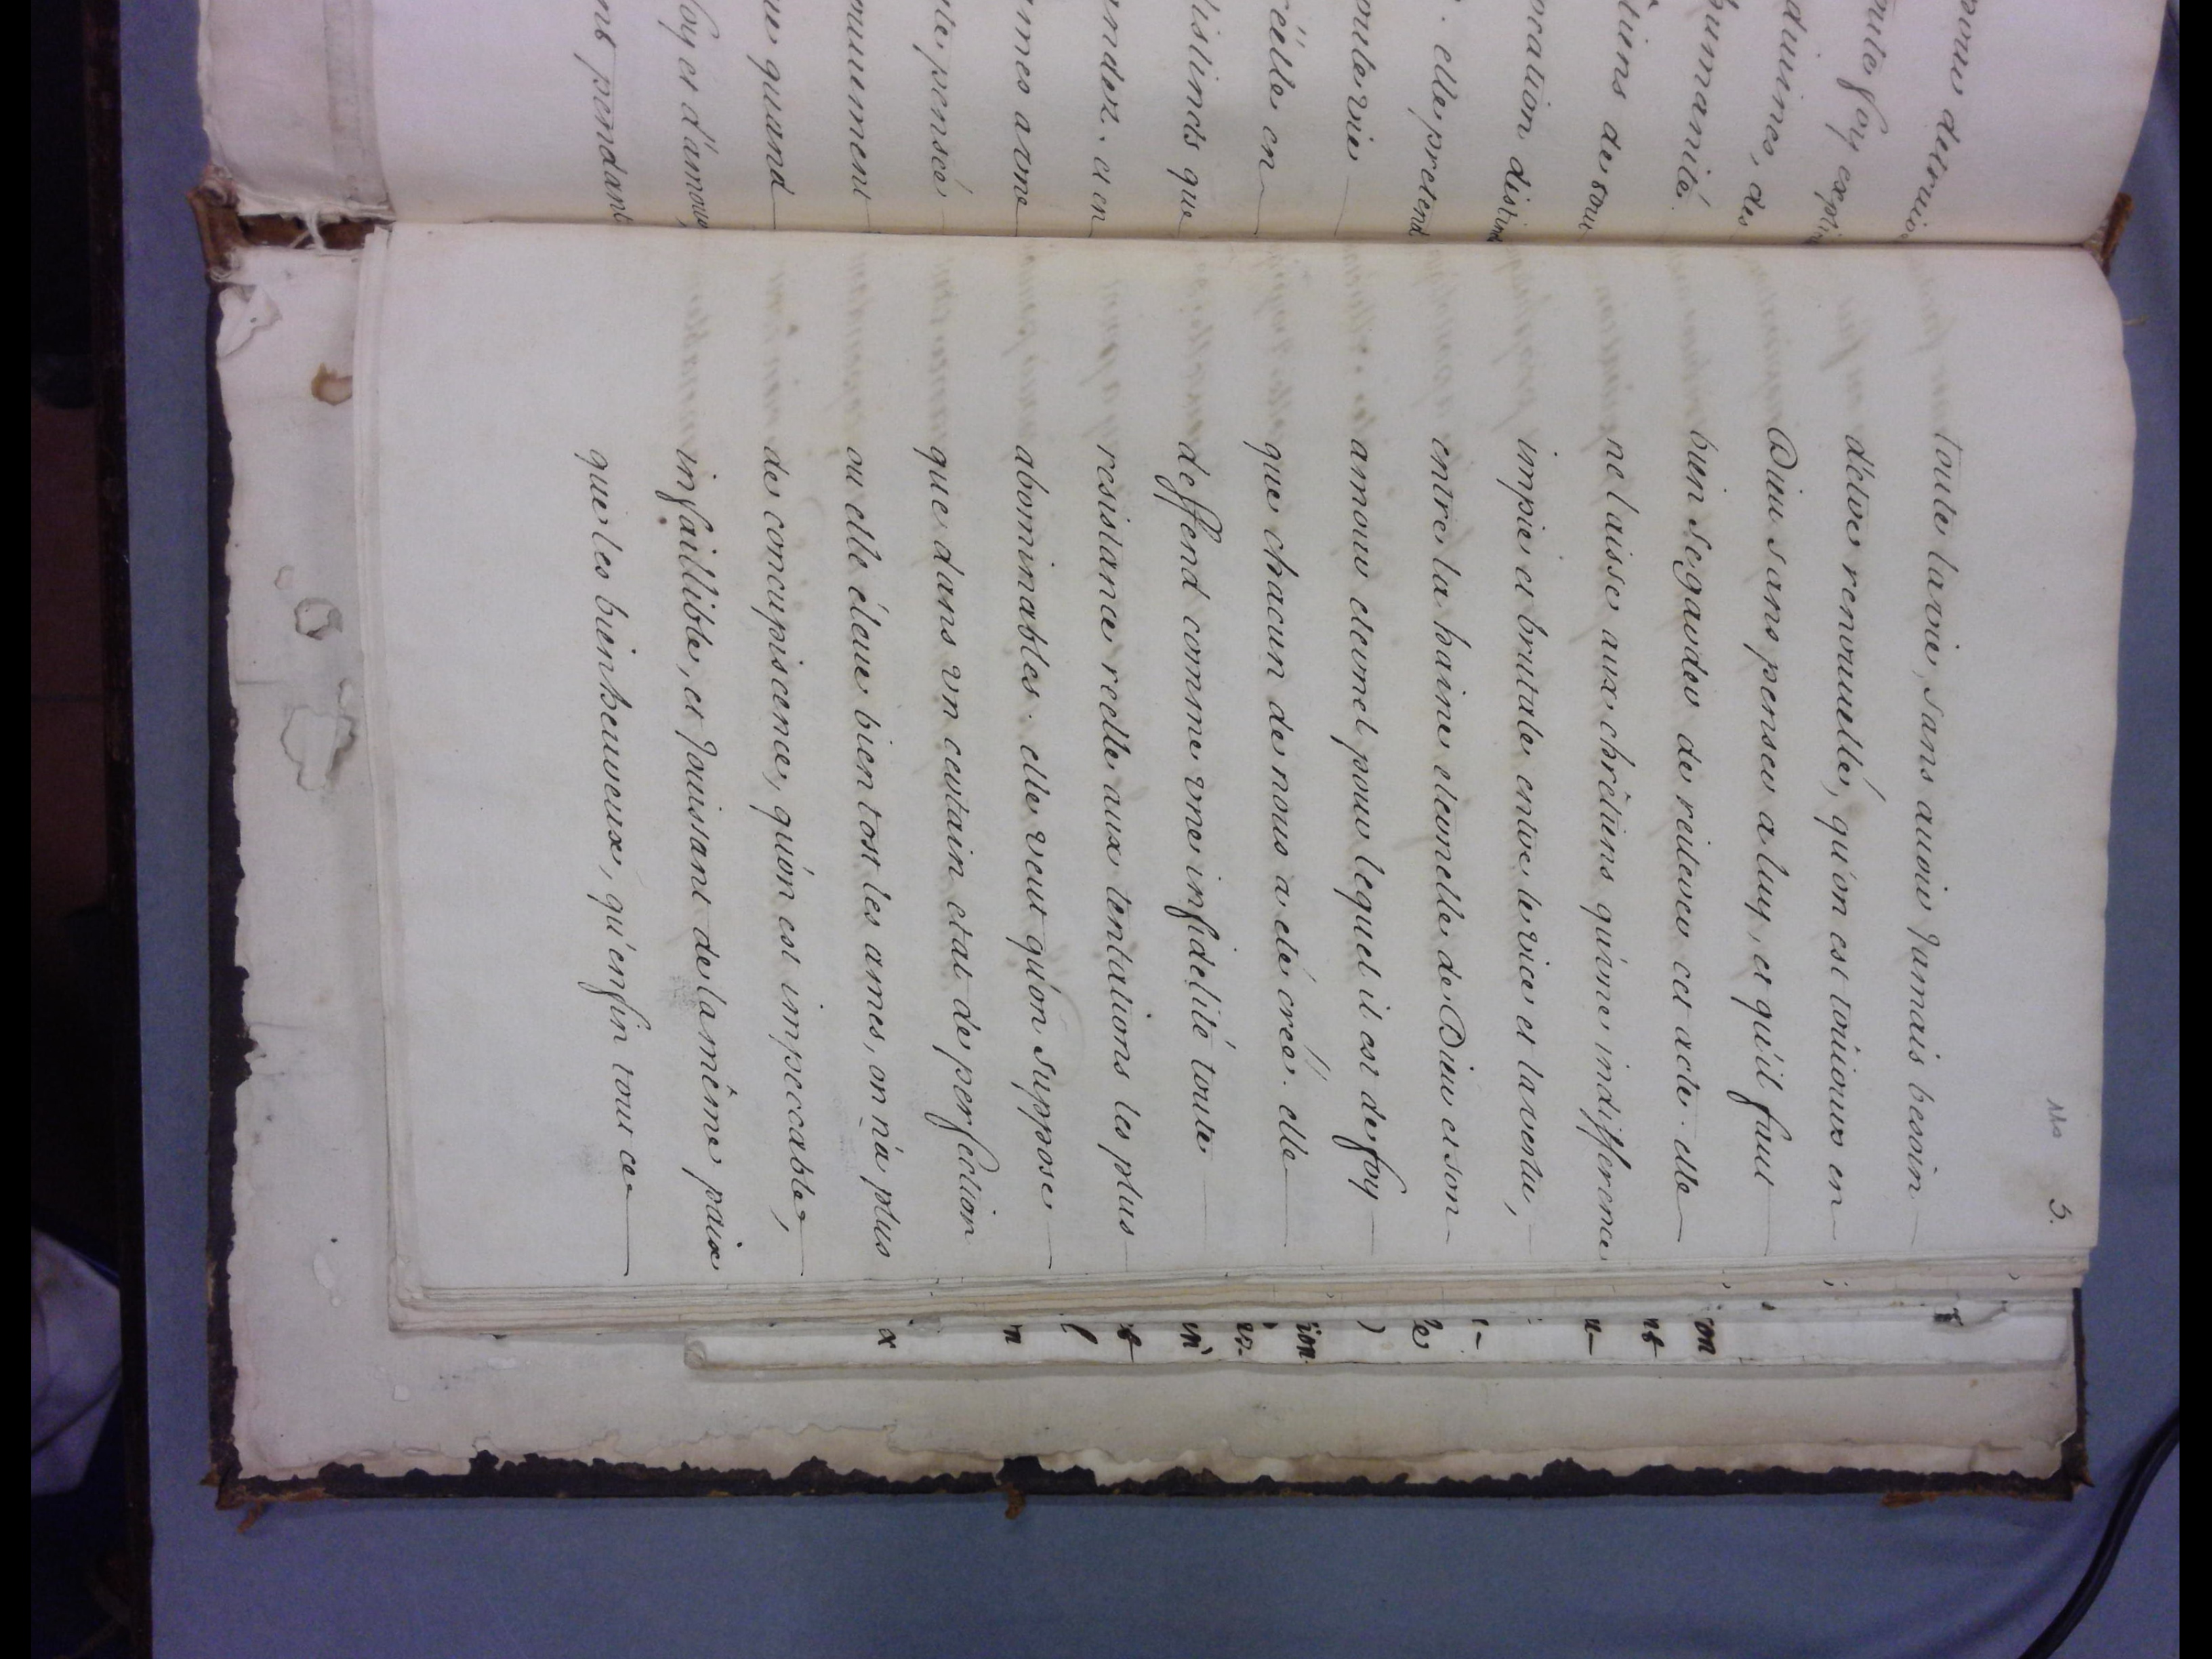 110 3.
toute la vie, sans auoir Jamais besoin
d'etre renouuellé, qu'on est toûiours en
Dieu sans penser a luy, et qu'il faut
bien se garder de reiterer cet acte. elle
ne laisse aux chrêtiens qu'une indifference
impie et brutale entre le vice et la vertu,
entre la haine eternelle de Dieu et son
amour eternel pour lequel il est de foy
que chacun de nous a eté creé. elle
deffend comme vne infidelité toute
resistance reelle aux tentations les plus
abominables. elle veut qu'on suppose
que dans vn certain etat de perfection
ou elle éleue bientost les ames, on n'a plus
de concupiscence, qu'on est impeccable,
infaillible, et Jouissant de la même paix
que les bienheureux, qu'enfin tout ce
pour detruire
foy
diuines, des
humanité.
tiens de tout
distinct
. elle pretend
réelle en
distincts que
et en
ames a vne
pensé
quand
foy et d'amour,
pendant
ion
nt
le
ion
n
x